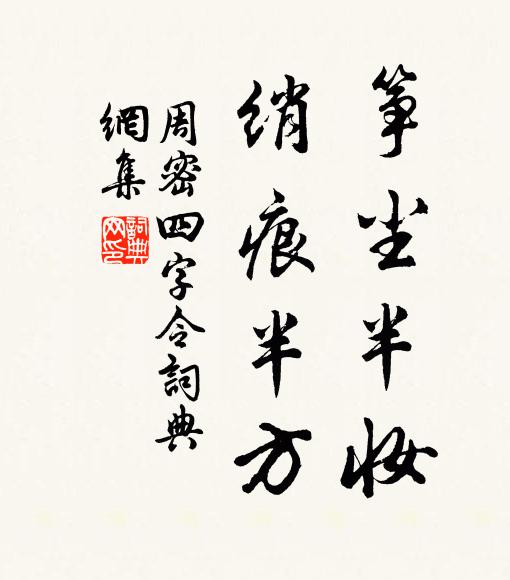 筝尘半妆
绡痕半方
周密四字令詞典
網集
詞典網印